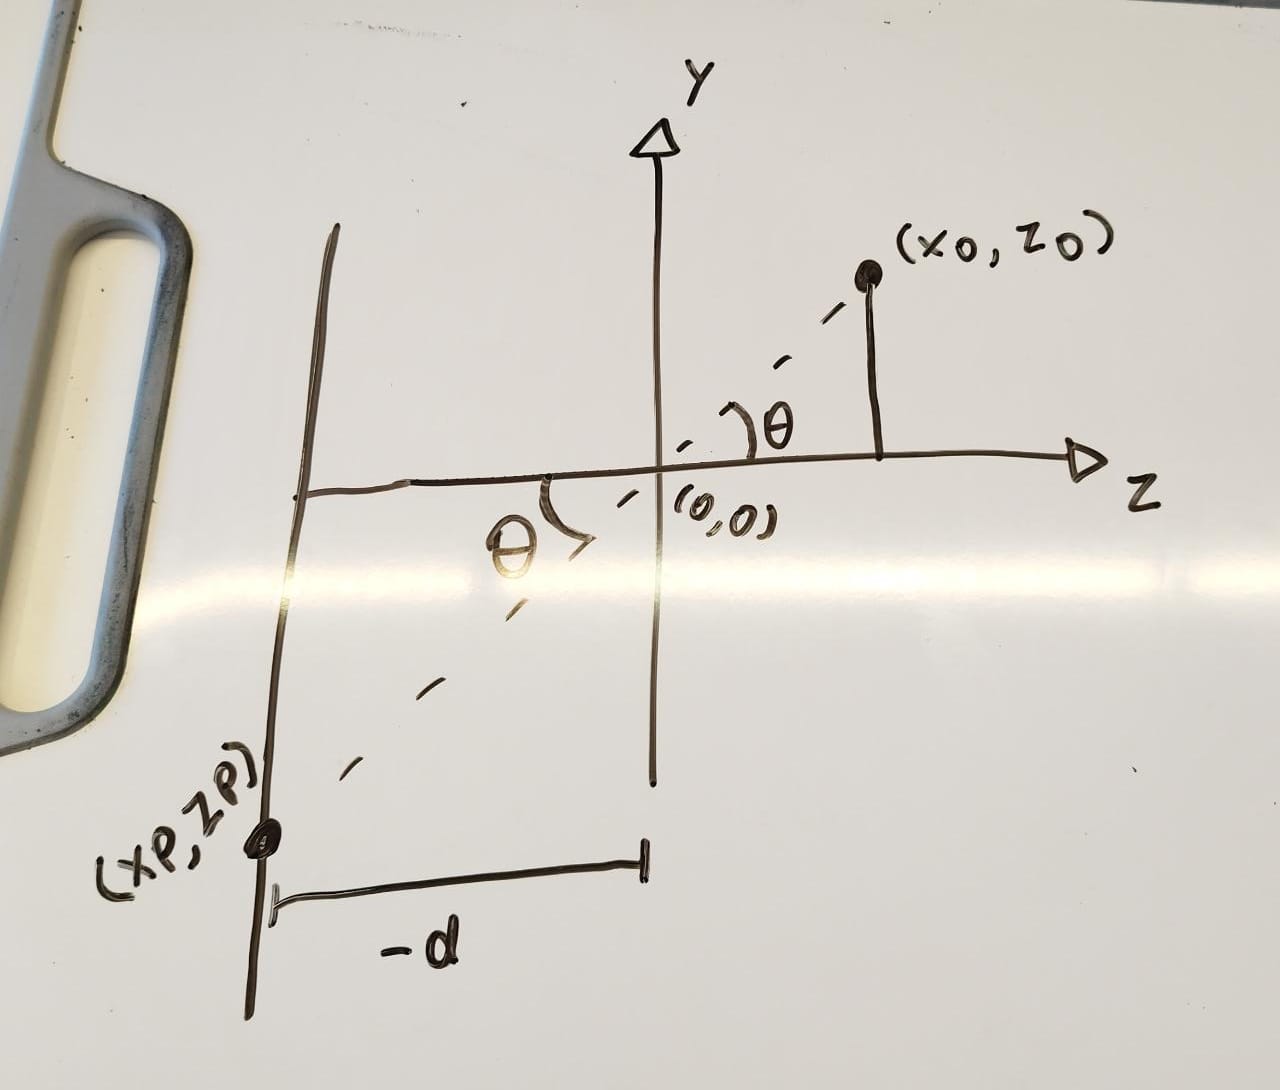 Y
(x0, z0)
θ
z
(0,0)
θ
(xp, zp)
-d